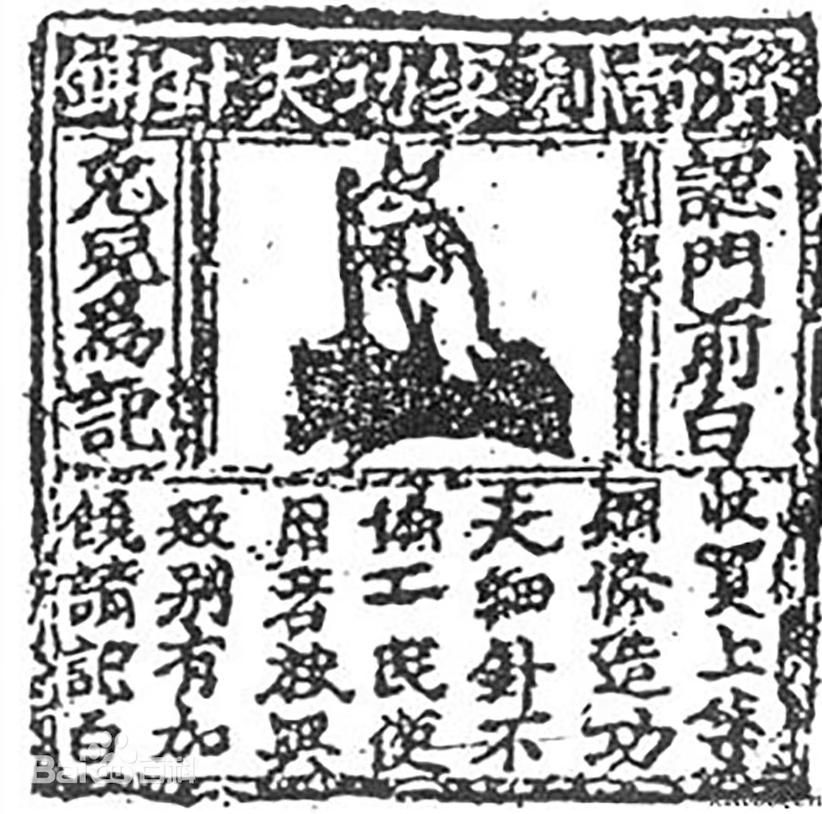 濟南劉家功夫針鋪
認門前白
兔兒為記
收買上等
鋼條造功
夫細針不
偷工民便
用若被興
販別有加
饒請記白
Bai百科